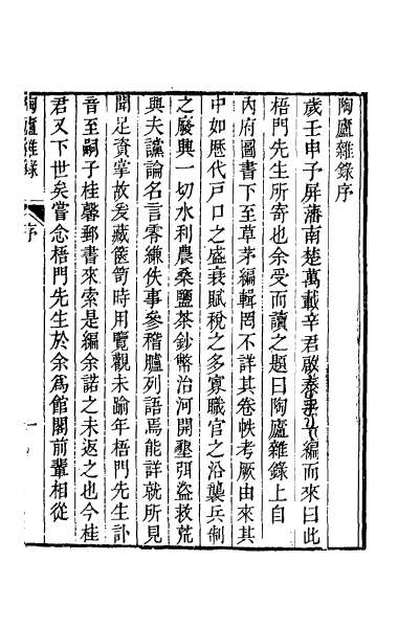 陶廬雜錄序
歲壬申子屏藩南楚萬載辛君啟泰編而來曰此
梧門先生所寄也余受而讀之題曰陶廬雜錄上自
內府圖書下至草茅編輯罔不詳其卷帙考厥由來其
中如歷代戶口之盛衰賦稅之多寡職官之沿襲兵制
之廢興一切水利農桑鹽茶鈔幣治河開墾弭盜救荒
與夫讜論名言零縑佚事參稽臚列語焉能詳就所見
聞足資掌故爰藏篋笥時用覽觀未踰年梧門先生訃
音至嗣子桂馨郵書來索是編余諾之未返之也今桂
君又下世矣嘗念梧門先生於余爲館閣前輩相從
陶廬雜錄
序
一